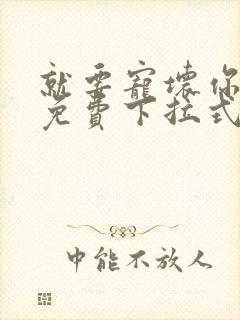 就要寵壞你
免費下拉式
中能不放人